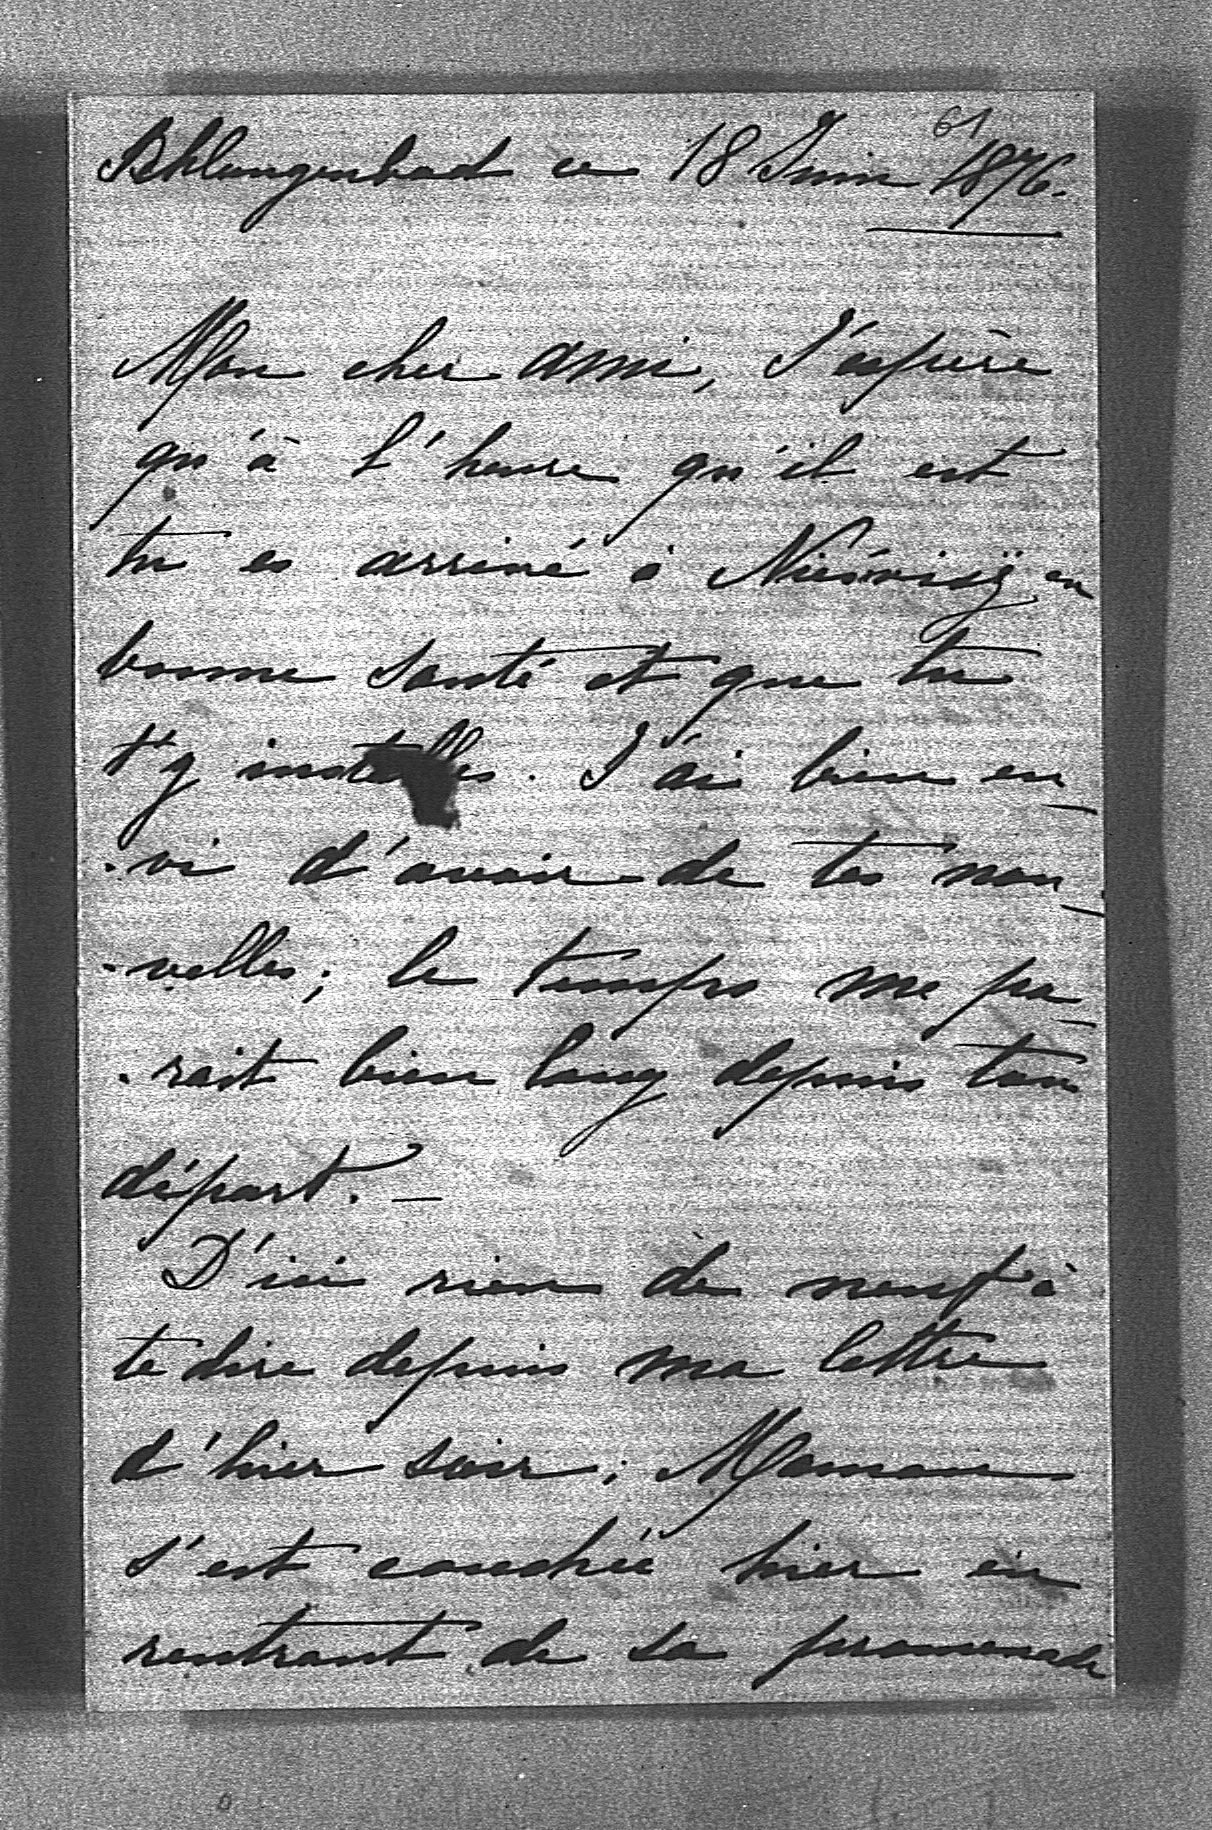 61
Schlangenbad ce 18 Juin 1876.
Mon cher ami, J'éspère
qu'à l'heure qu'il est
tu es arrivé à Nieświsz en
bonne santé et que tu
t'y installes. J'ai bien en-
-vi d'avoir de tes nou-
-velles; le temps me pa-
-rait bien long depuis ton
départ. —
D'ici rien de neuf à
te dire depuis ma lettre
d'hier soir; Maman
s'est couchée hier en
rentrant de sa promenade